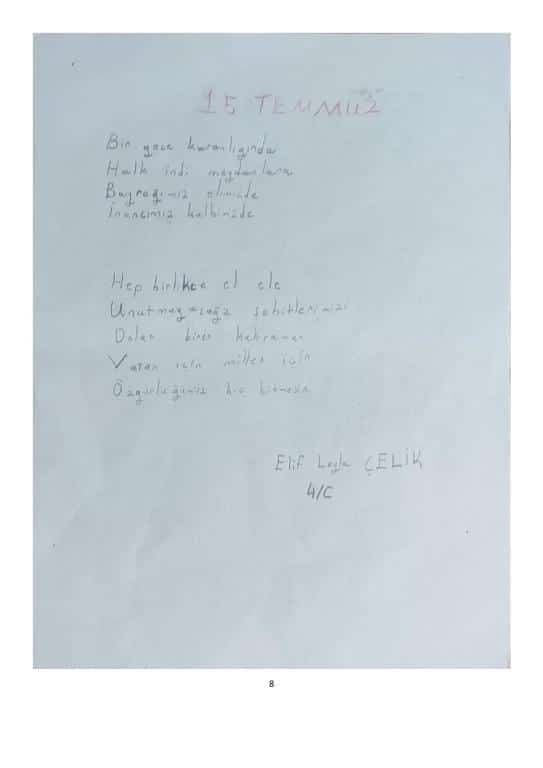 15 TEMMUZ
Bir gece karanlığında
Halk indi meydanlara
Bayrağımız elimizde
İnancımız kalbimizde
Hep birlikte el ele
Unutmayacağız şehitlerimizi
Onlar birer kahraman
Vatan için millet için
Özgürlüğümüz hiç bitmesin
Elif Leyla ÇELİK
4/C
8